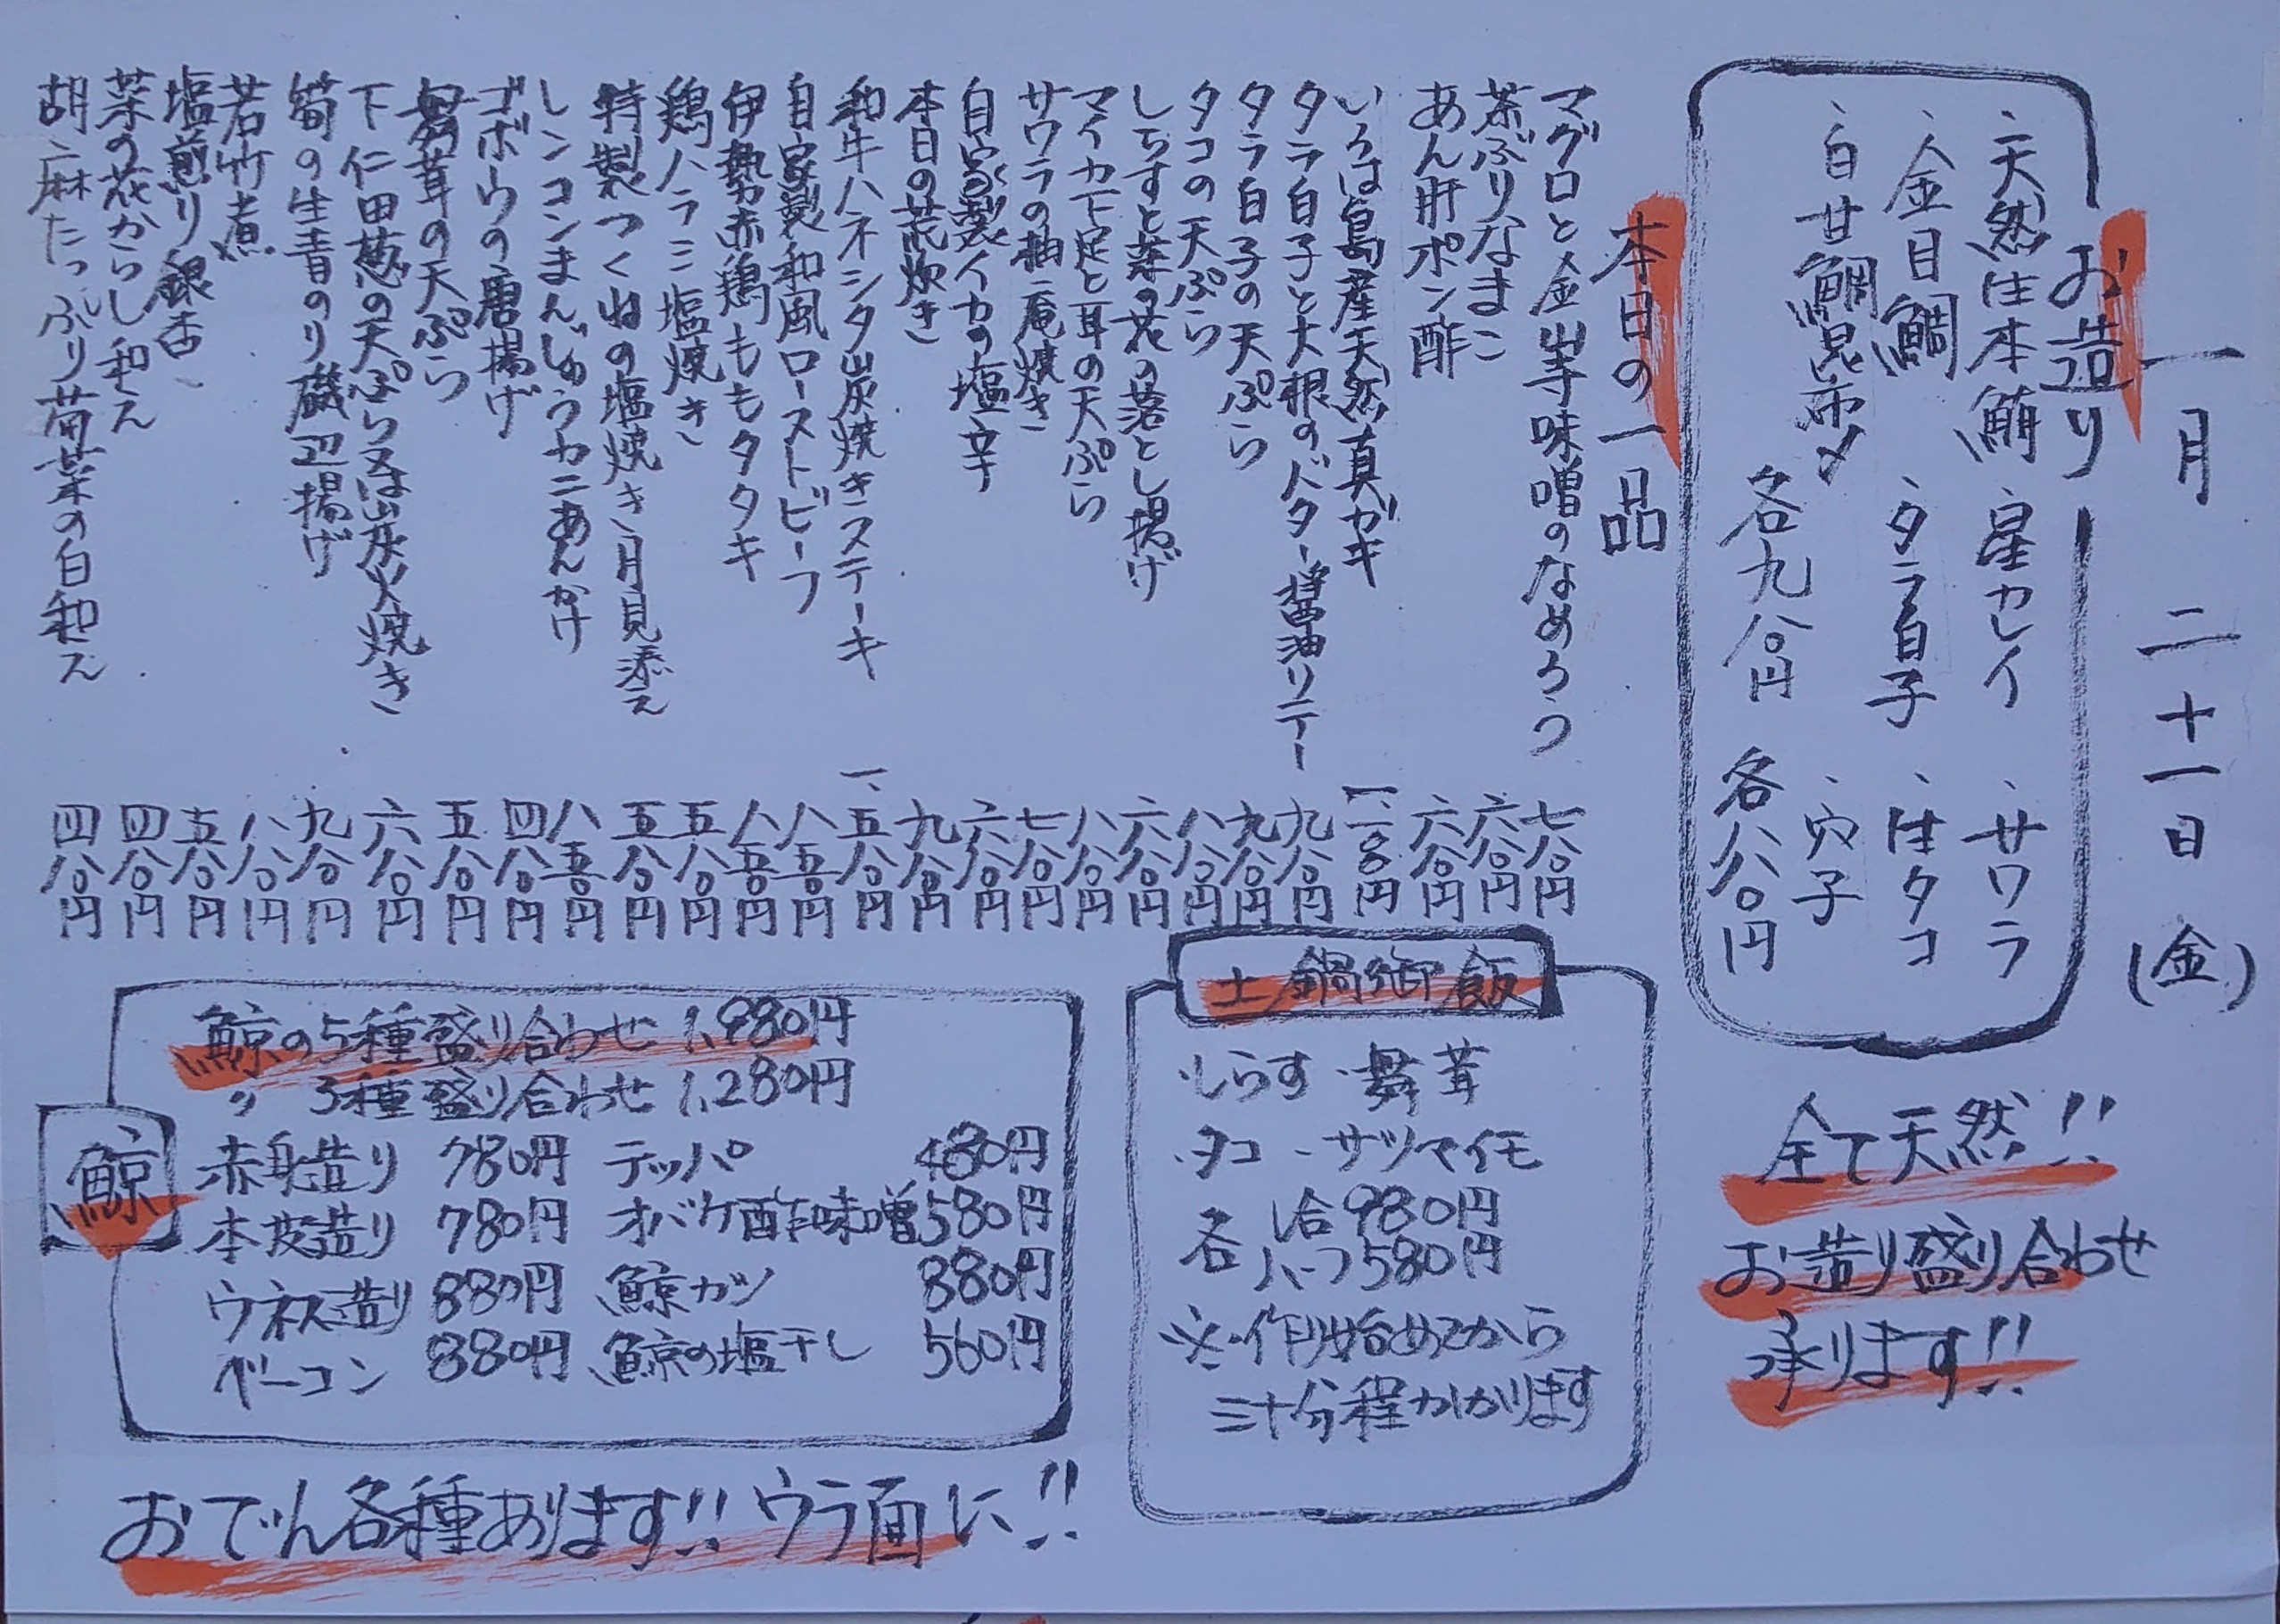 一月二十一日(金)
お造り
・天然生本鮪 ・星カレイ ・サワラ
・金目鯛 ・タラ白子 ・生タコ
・白甘鯛昆布〆 ・穴子
各九八〇円 各八八〇円
全て天然!!
お造り盛り合わせ
承ります!!
本日の一品
マグロと金山寺味噌のなめろう 七八〇円
茶ぶりなまこ 六八〇円
あん肝ポン酢 六八〇円
いろは島産天然真ガキ 一、一八〇円
タラ白子と大根のバター醤油ソテー 九八〇円
タラ白子の天ぷら 九八〇円
タコの天ぷら 八八〇円
しらすと菜の花の落とし揚げ 六八〇円
マイカ下足と耳の天ぷら 八八〇円
サワラの柚庵焼き 七八〇円
自家製イカの塩辛 六八〇円
本日の荒炊き 九八〇円
和牛ハネシタ炭焼きステーキ 一、五八〇円
自家製和風ローストビーフ 八五〇円
伊勢赤鶏ももタタキ 八五〇円
鶏ハラミ塩焼き 五八〇円
特製つくねの塩焼き、月見添え 五八〇円
レンコンまんじゅうカニあんかけ 八五〇円
ゴボウの唐揚げ 四八〇円
舞茸の天ぷら 五八〇円
下仁田葱の天ぷら又は炭火焼き 六八〇円
筍の生青のり磯辺揚げ 九八〇円
若竹煮 八八〇円
塩煎り銀杏 五八〇円
菜の花からし和え 四八〇円
胡麻たっぷり菊菜の白和え 四八〇円
土鍋御飯
・しらす ・舞茸
・タコ ・サツマイモ
各 1合980円
ハーフ580円
※作り始めてから
三十分程かかります
鯨
鯨の5種盛り合わせ 1,980円
〃 3種盛り合わせ 1,280円
赤身造り 780円 テッパ 480円
本皮造り 780円 オバケ酢味噌 580円
ウネス造り 880円 鯨カツ 880円
ベーコン 880円 鯨の塩干し 560円
おでん各種あります!!ウラ面に!!